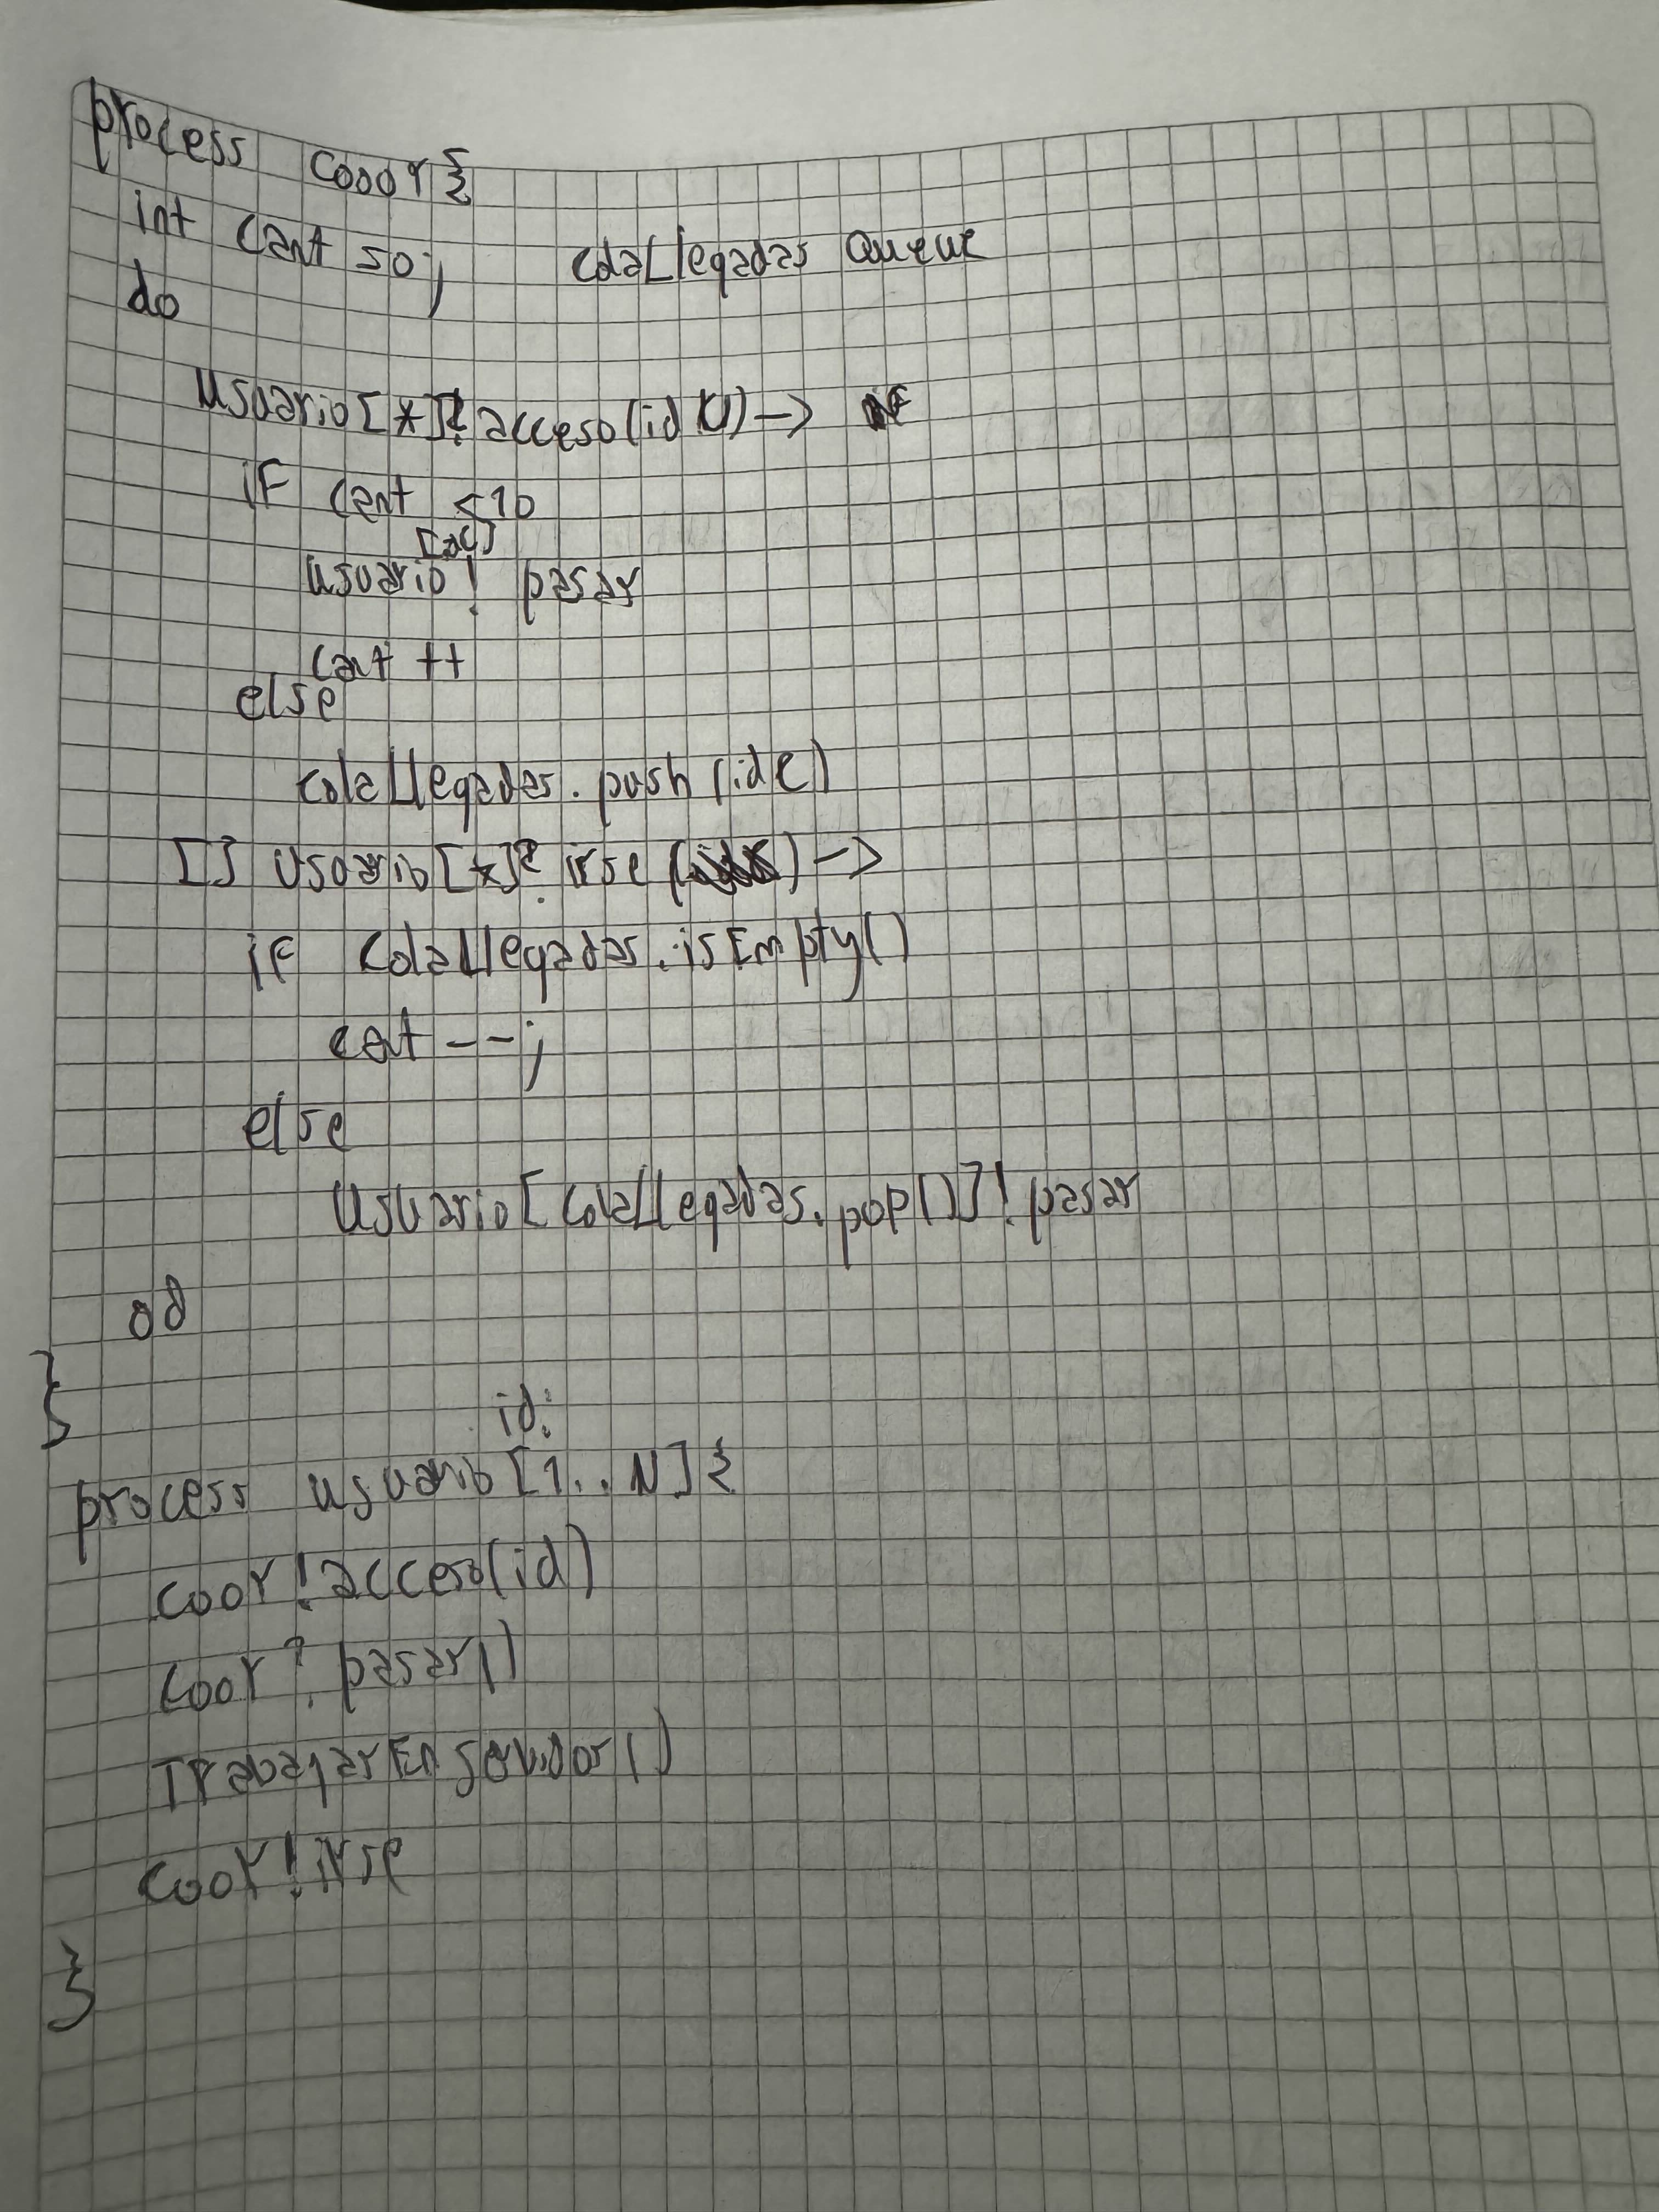 process coor {
int cant = 0; colaLlegadas Queue
do
usuario[*]? acceso(idU) ->
if cant < 10
usuario[idU]! pasar
cant ++
else
colaLlegadas.push(idU)
[] usuario[*]? irse ( ) ->
if colaLlegadas.isEmpty()
cant --;
else
usuario[colaLlegadas.pop()]! pasar
od
}
id:
process usuario [1..N] {
coor!acceso(id)
coor?pasar()
TrabajarEnServidor()
coor!irse
}